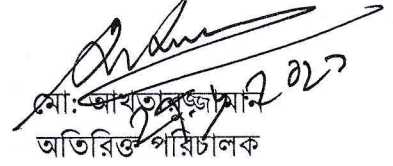 মো: আখতারুজ্জামান
অতিরিক্ত পরিচালক